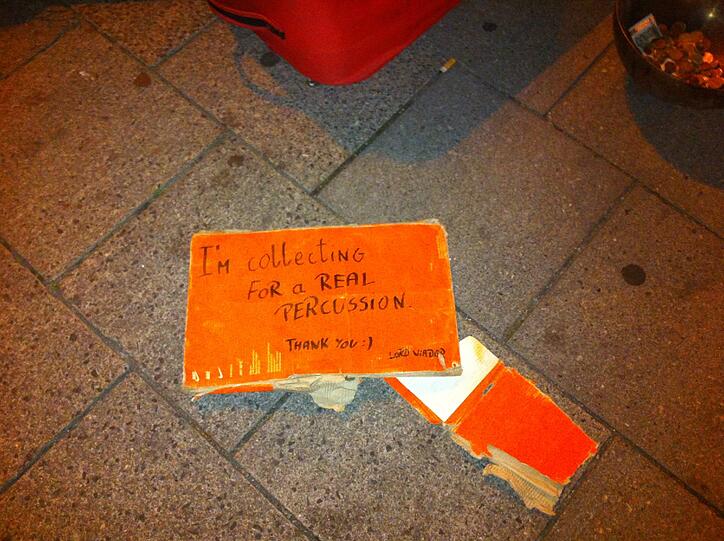 I'm collecting
FOR a REAL
PERCUSSION.
THANK YOU :)
LORD